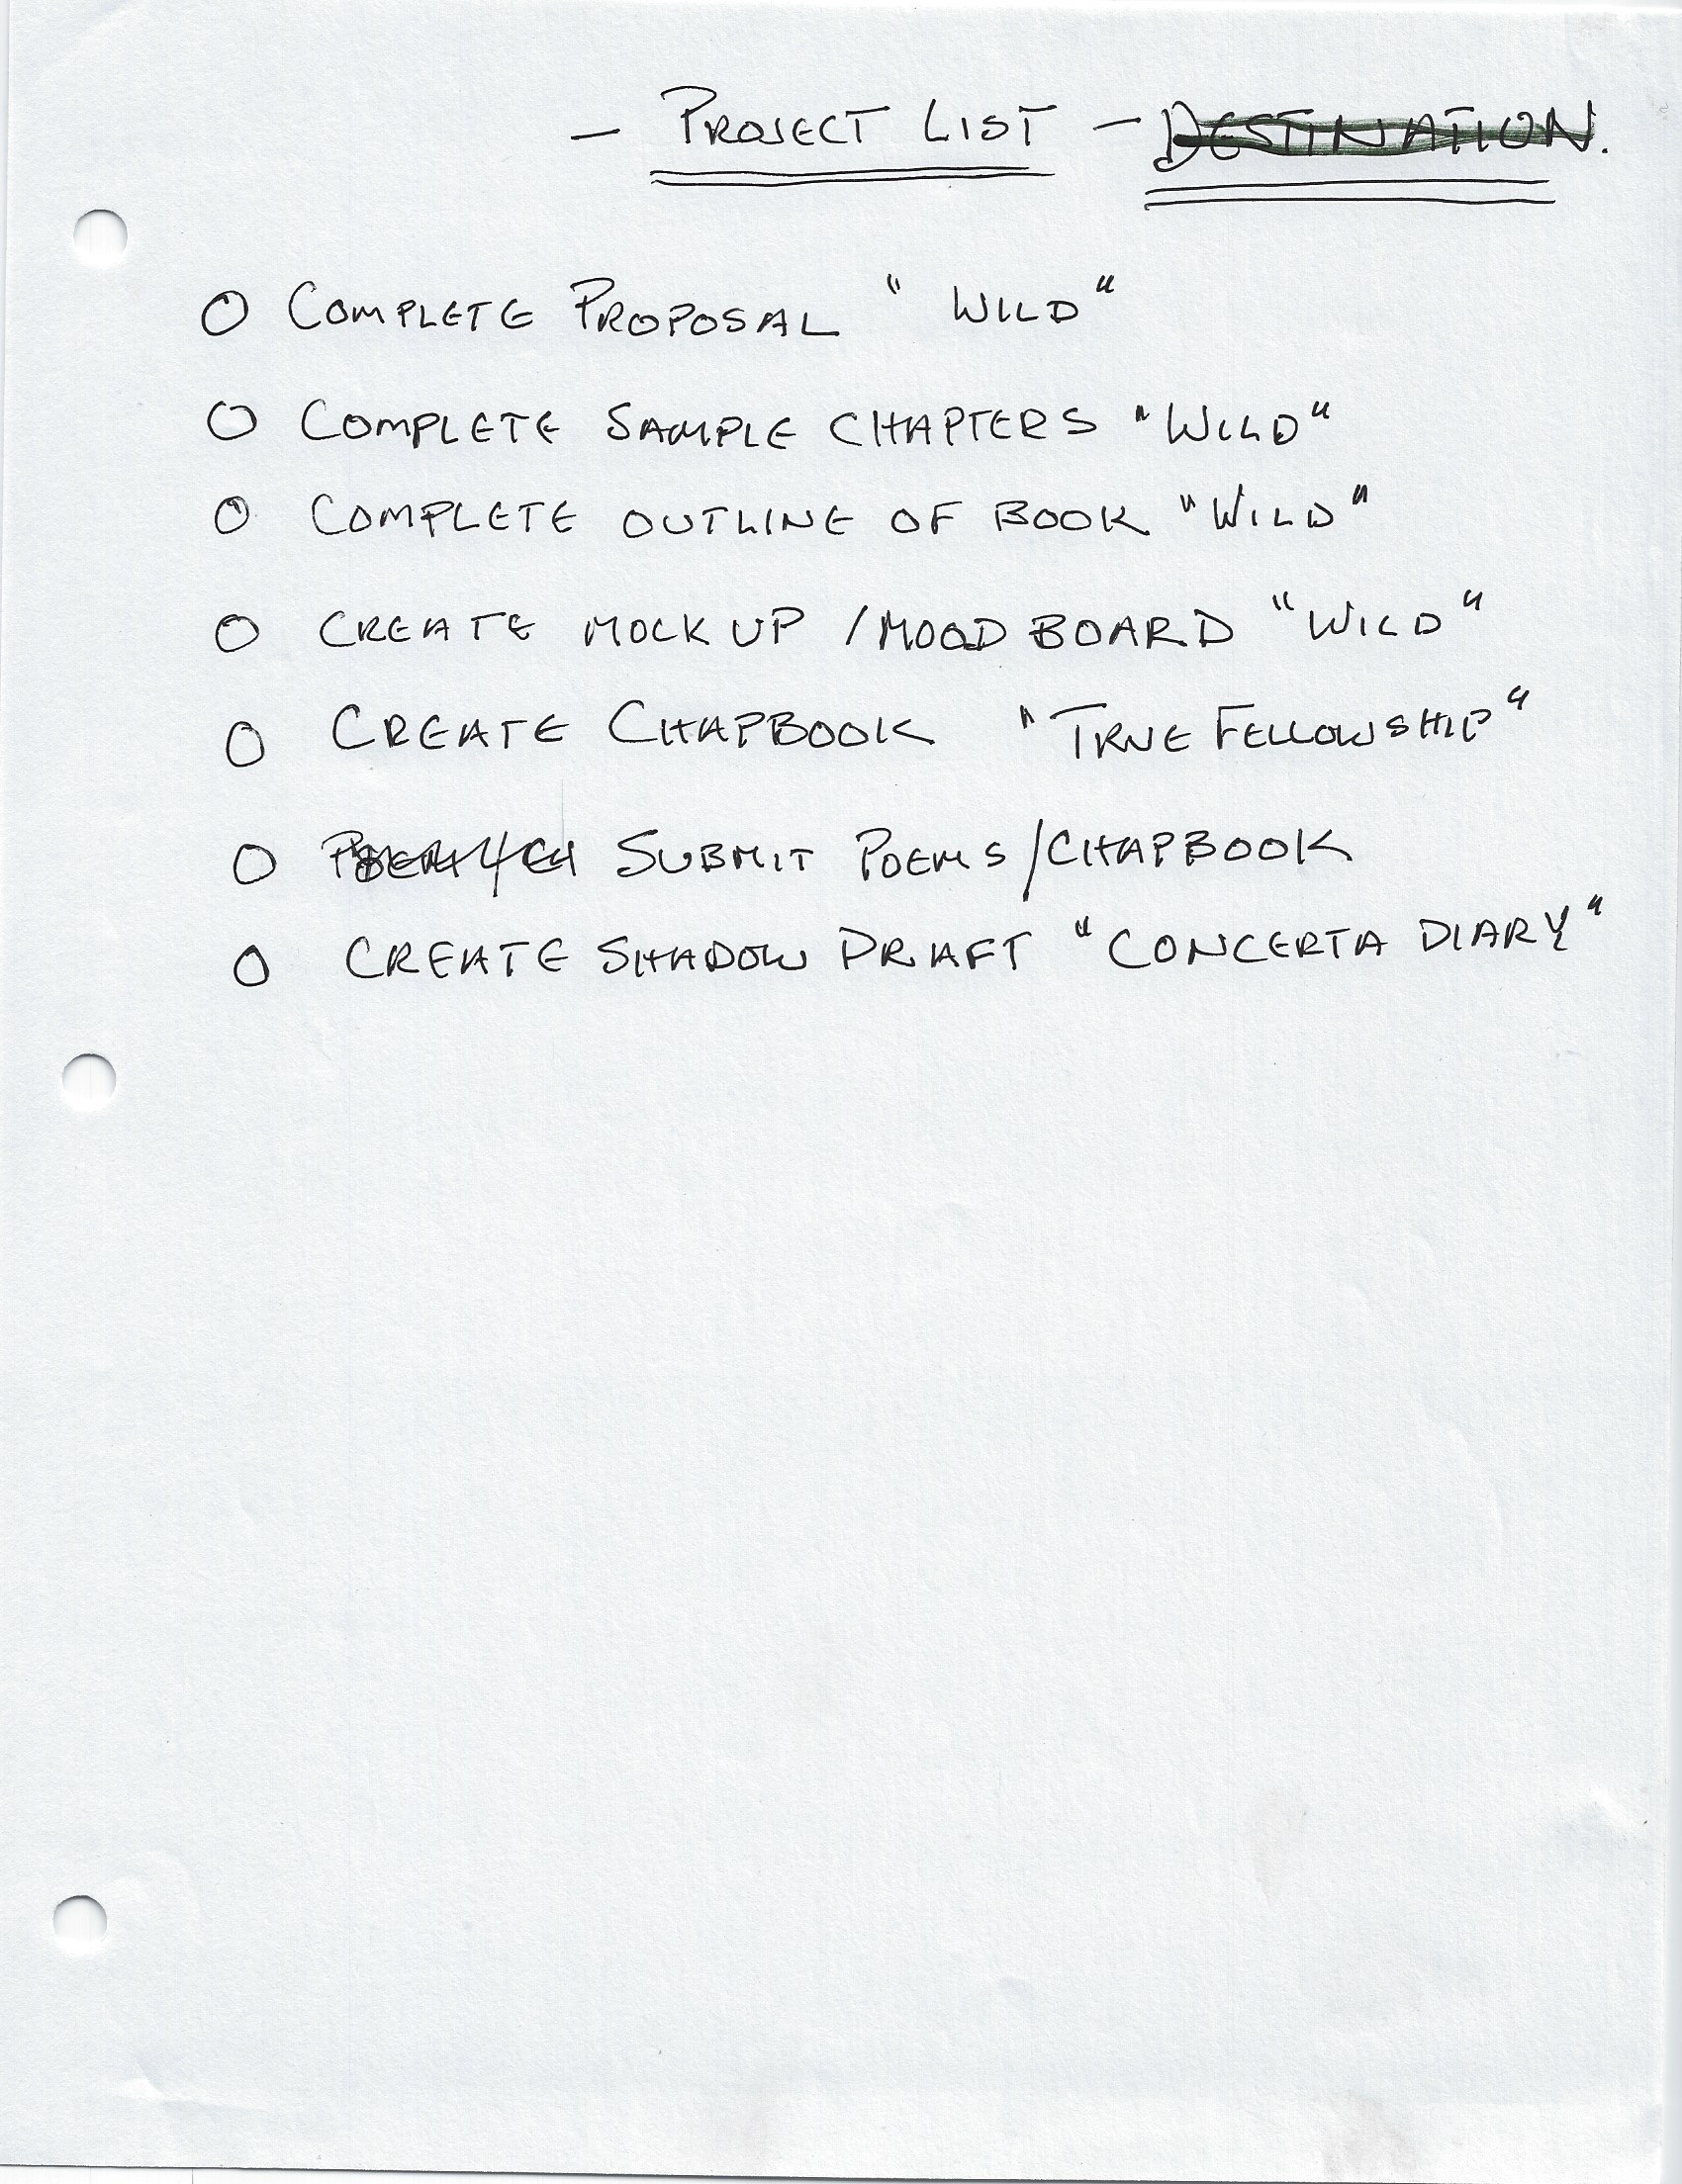 - PROJECT LIST - DESTINATION.
O COMPLETE PROPOSAL " WILD "
O COMPLETE SAMPLE CHAPTERS "WILD"
O COMPLETE OUTLINE OF BOOK "WILD"
O CREATE MOCK UP / MOOD BOARD "WILD"
O CREATE CHAPBOOK "TRUE FELLOWSHIP"
O SUBMIT POEMS / CHAPBOOK
O CREATE SHADOW DRAFT "CONCERTA DIARY"